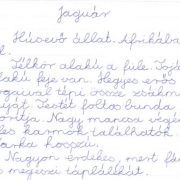 Jaguár
Húsevő állat. Afrikába
él.
Félkör alakú a füle. Tojás
alakú feje van. Hegyes erős
fogaival tépi össze zsákmá
nyát. Testét foltos bunda
borítja. Nagy mancsa végén
éles karmok találhatók.
Farka hosszú.
Nagyon érdekes, mert fán
is megeszi táplálékát.